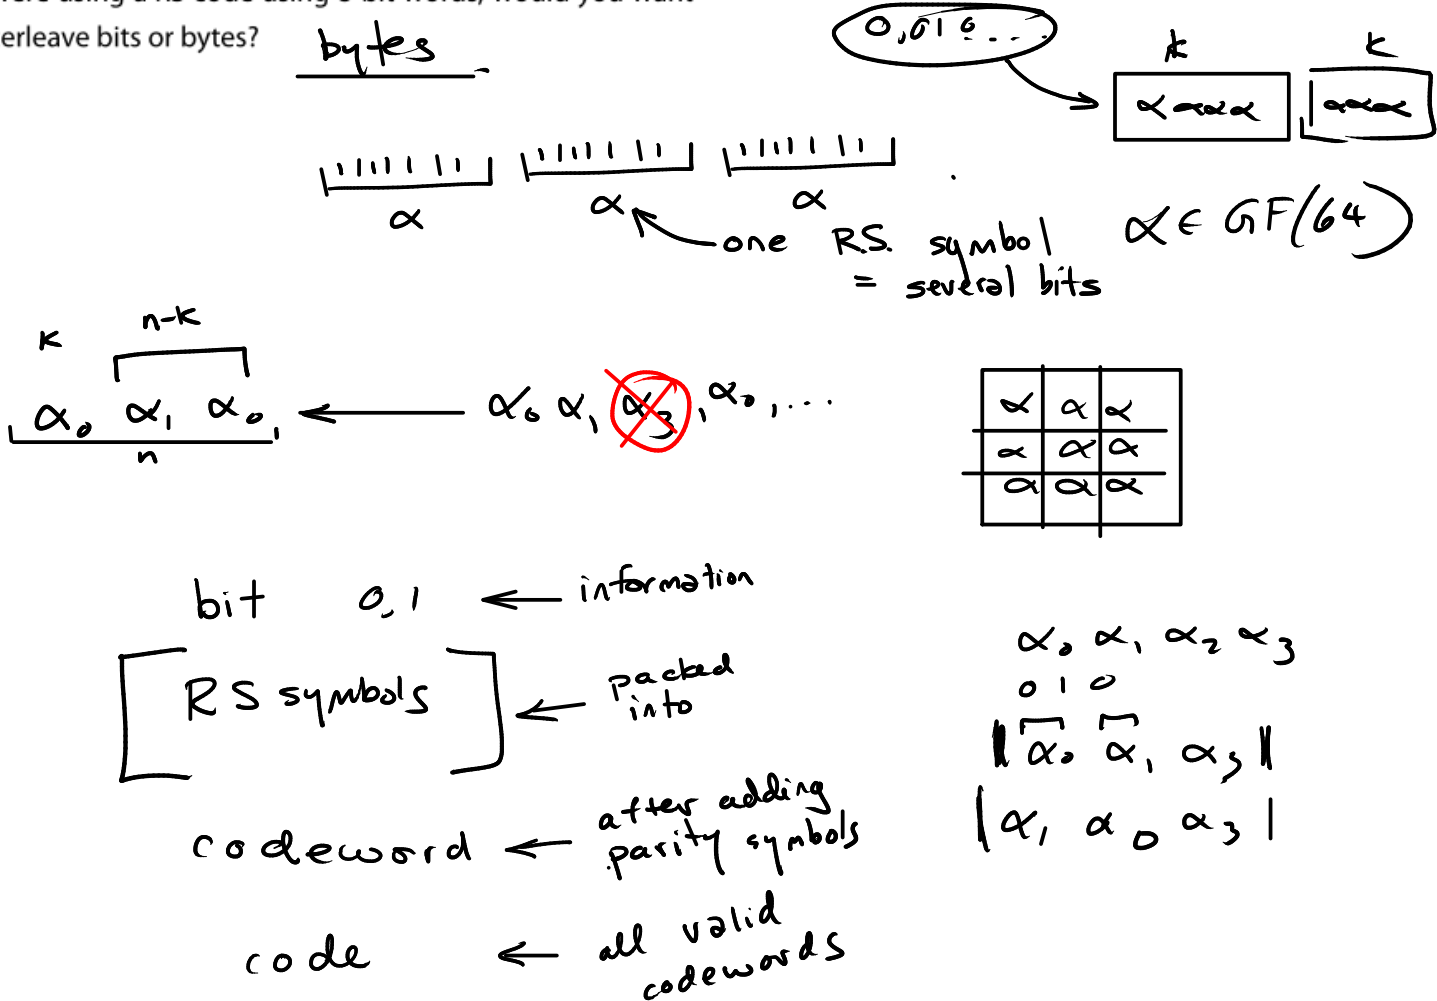 erleave bits or bytes?
bytes
0,010....
k k
α α α α α α α
α α α
α ∈ GF(64)
one R.S. symbol
= several bits
k n-k
α₀ α₁ α₀,
n
α₀ α₁ α₃, α₀, ...
α α α
α α α
α α α
bit 0,1 ← information
RS symbols ← packed
into
codeword ← after adding
parity symbols
code ← all valid
codewords
α₀ α₁ α₂ α₃
0 1 0
α₀ α₁ α₃
α₁ α₀ α₃